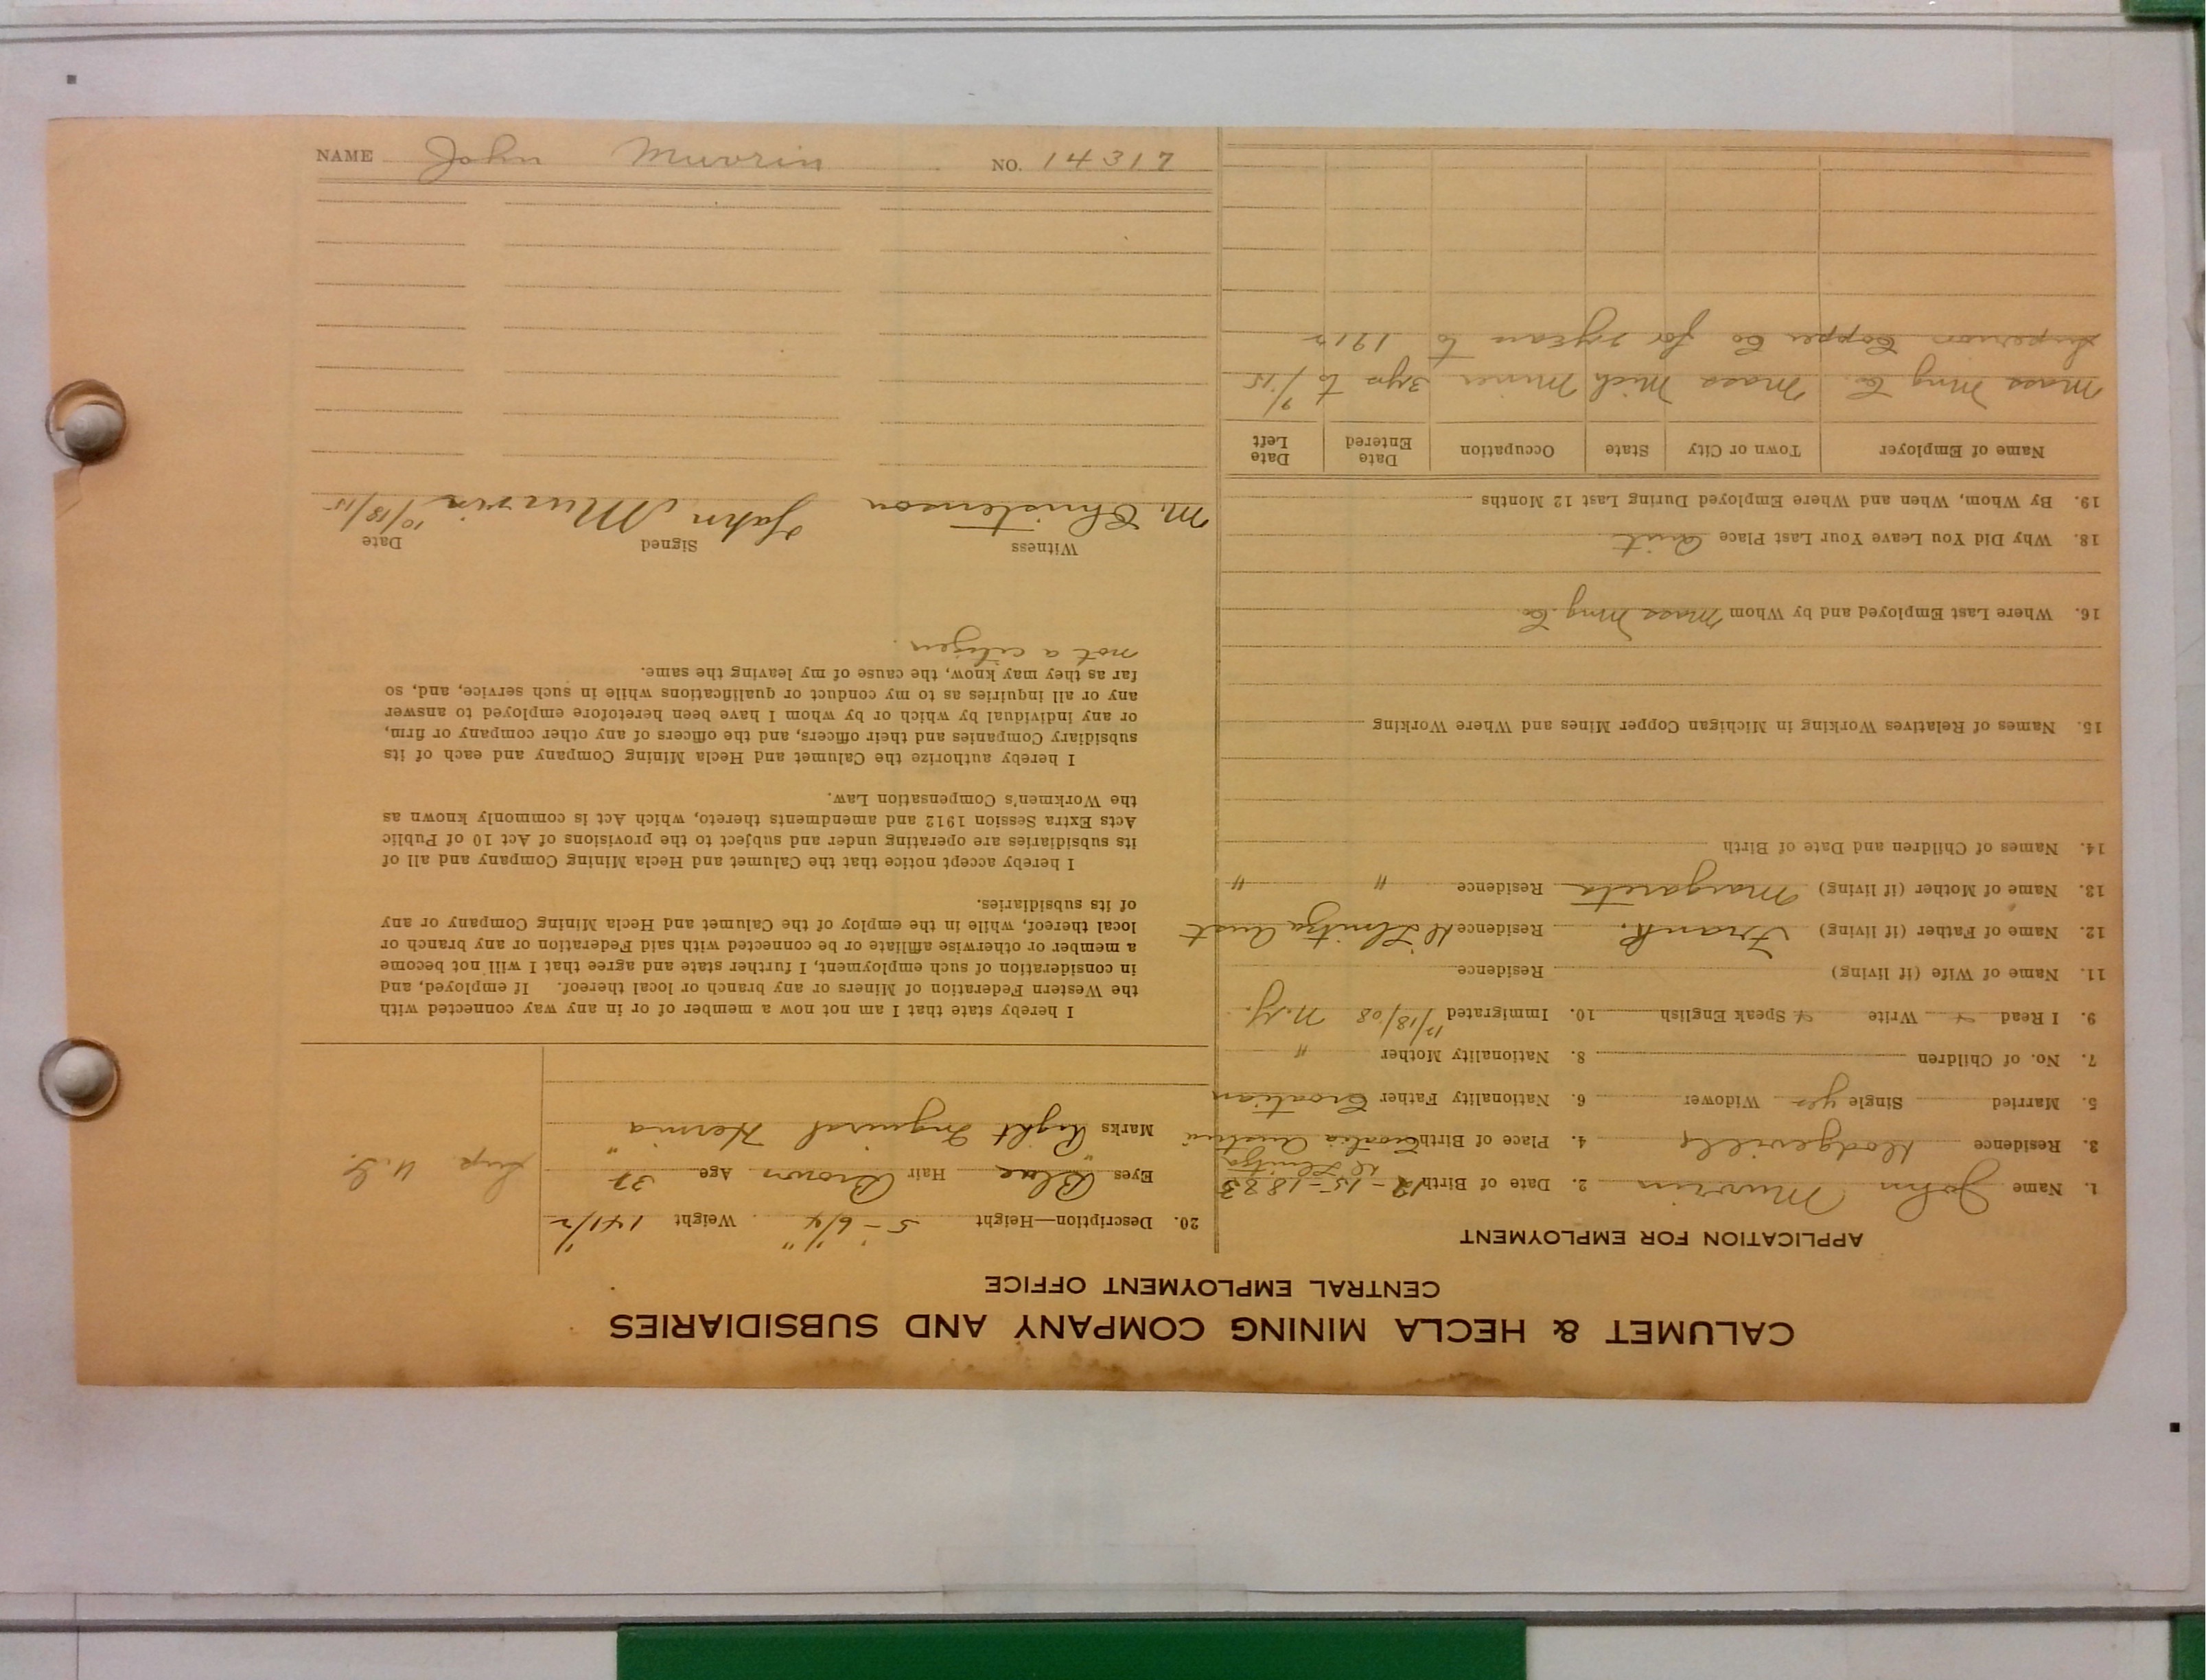 CALUMET & HECLA MINING COMPANY AND SUBSIDIARIES
CENTRAL EMPLOYMENT OFFICE
APPLICATION FOR EMPLOYMENT
1. Name John Muvrin 2. Date of Birth 12-15-1883
3. Residence Dodgeville 4. Place of Birth Croatia Austria
5. Married Single yes Widower 6. Nationality Father Croatian
7. No. of Children 8. Nationality Mother "
9. I Read Write Speak English 10. Immigrated 12/18/08 N.Y.
11. Name of Wife (if living) Residence
12. Name of Father (if living) Frank. Residence Aust
13. Name of Mother (if living) Margareta Residence " "
14. Names of Children and Date of Birth
15. Names of Relatives Working in Michigan Copper Mines and Where Working
16. Where Last Employed and by Whom Mass Mng Co.
18. Why Did You Leave Your Last Place Quit
19. By Whom, When and Where Employed During Last 12 Months
Name of Employer Town or City State Occupation Date Entered Date Left
Mass Mng Co. Mass Mich Miner 3yrs to 9/15
Superior Copper Co for years to 1912
20. Description—Height 5-6¼" Weight 141½
Eyes Blue Hair Brown Age
Marks "Right Inguinal Hernia"
Sup. U.G.
I hereby state that I am not now a member of or in any way connected with
the Western Federation of Miners or any branch or local thereof. If employed, and
in consideration of such employment, I further state and agree that I will not become
a member or otherwise affiliate or be connected with said Federation or any branch or
local thereof, while in the employ of the Calumet and Hecla Mining Company or any
of its subsidiaries.
I hereby accept notice that the Calumet and Hecla Mining Company and all of
its subsidiaries are operating under and subject to the provisions of Act 10 of Public
Acts Extra Session 1912 and amendments thereto, which Act is commonly known as
the Workmen's Compensation Law.
I hereby authorize the Calumet and Hecla Mining Company and each of its
subsidiary Companies and their officers, and the officers of any other company or firm,
or any individual by which or by whom I have been heretofore employed to answer
any or all inquiries as to my conduct or qualifications while in such service, and, so
far as they may know, the cause of my leaving the same.
not a citizen.
Witness Signed Date
M. Christenson John Muvrin 10/18/15
NAME John Muvrin NO. 14317